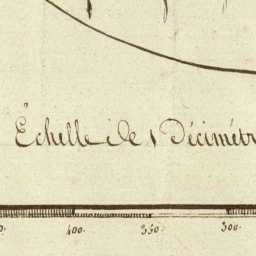 Échelle de 1 Décimétr
0. 400. 350. 300.